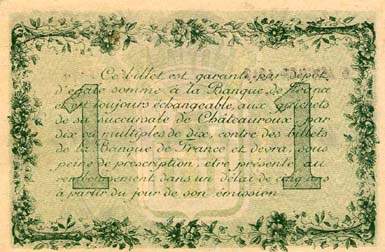 Ce billet est garanti par Dépôt
d'égale somme à la Banque de France
et est toujours échangeable, aux guichets
de sa succursale de Châteauroux, par
dix ou multiples de dix, contre des billets
de la Banque de France et devra, sous
peine de prescription, être présenté au
remboursement dans un délai de cinq ans
à partir du jour de son émission.
1 1